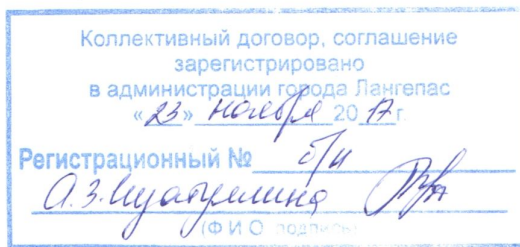 Коллективный договор, соглашение
зарегистрировано
в администрации города Лангепас
«23» ноября 2017 г.
Регистрационный № б/н
А.З.
(Ф И О подпись)